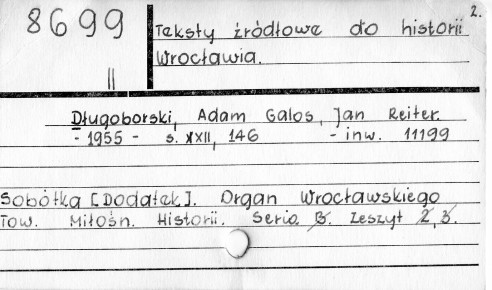 8699
2.
Teksty źródłowe do historii
Wrocławia.
II
Długoborski, Adam Galos, Jan Reiter.
- 1955 - s. XXII, 146 - inw. 11199
Sobótka [Dodatek]. Organ Wrocławskiego
Tow. Miłośn. Historii. Seria B. Zeszyt 2, 3.